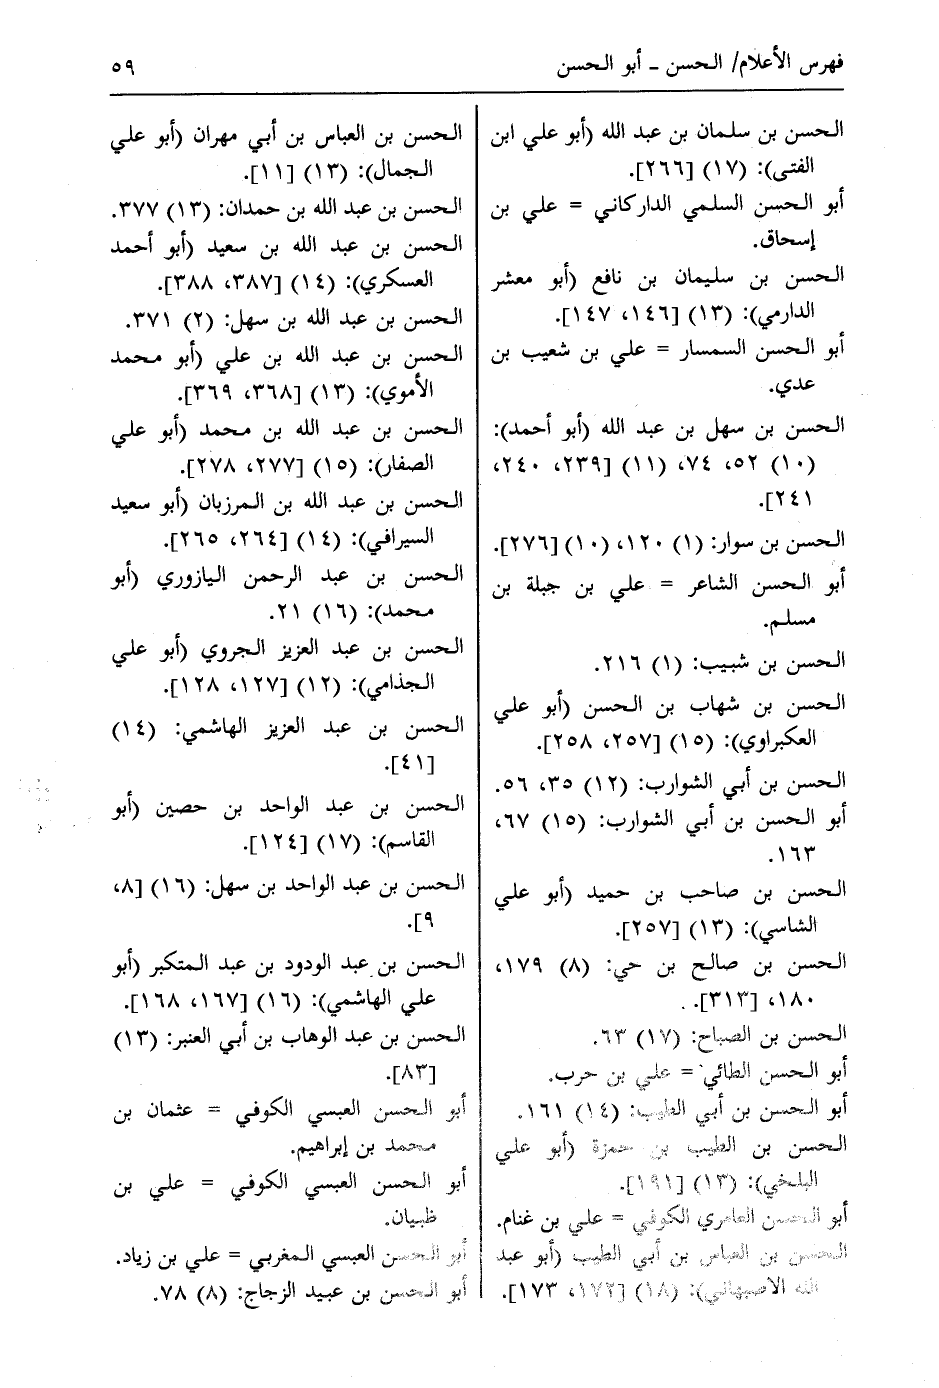 فهرس الأعلام/ الحسن ـ أبو الحسن
٥٩
الحسن بن سلمان بن عبد الله (أبو علي ابن
الفتى): (١٧) [٢٦٦].
أبو الحسن السلمي الداركاني = علي بن
إسحاق.
الحسن بن سليمان بن نافع (أبو معشر
الدارمي): (١٣) [١٤٦، ١٤٧].
أبو الحسن السمسار = علي بن شعيب بن
عدي.
الحسن بن سهل بن عبد الله (أبو أحمد):
(١٠) ٥٢، ٧٤، (١١) [٢٣٩، ٢٤٠،
٢٤١].
الحسن بن سوار: (١) ١٢٠، (١٠) [٢٧٦].
أبو الحسن الشاعر = علي بن جبلة بن
مسلم.
الحسن بن شبيب: (١) ٢١٦.
الحسن بن شهاب بن الحسن (أبو علي
العكبراوي): (١٥) [٢٥٧، ٢٥٨].
الحسن بن أبي الشوارب: (١٢) ٣٥، ٥٦.
أبو الحسن بن أبي الشوارب: (١٥) ٦٧،
١٦٣.
الحسن بن صاحب بن حميد (أبو علي
الشاسي): (١٣) [٢٥٧].
الحسن بن صالح بن حي: (٨) ١٧٩،
١٨٠، [٣١٣].
الحسن بن الصباح: (١٧) ٦٣.
أبو الحسن الطائي = علي بن حرب.
أبو الحسن بن أبي الطيب: (١٤) ١٦١.
الحسن بن الطيب بن حمزة (أبو علي
البلخي): (١٣) [١٩١].
أبو الحسن العامري الكوفي = علي بن غنام.
الحسن بن العباس بن أبي الطيب (أبو عبد
الله الاصبهاني): (١٨) [١٧٢، ١٧٣].
الحسن بن العباس بن أبي مهران (أبو علي
الجمال): (١٣) [١١].
الحسن بن عبد الله بن حمدان: (١٣) ٣٧٧.
الحسن بن عبد الله بن سعيد (أبو أحمد
العسكري): (١٤) [٣٨٧، ٣٨٨].
الحسن بن عبد الله بن سهل: (٢) ٣٧١.
الحسن بن عبد الله بن علي (أبو محمد
الأموي): (١٣) [٣٦٨، ٣٦٩].
الحسن بن عبد الله بن محمد (أبو علي
الصفار): (١٥) [٢٧٧، ٢٧٨].
الحسن بن عبد الله بن المرزبان (أبو سعيد
السيرافي): (١٤) [٢٦٤، ٢٦٥].
الحسن بن عبد الرحمن اليازوري (أبو
محمد): (١٦) ٢١.
الحسن بن عبد العزيز الجروي (أبو علي
الجذامي): (١٢) [١٢٧، ١٢٨].
الحسن بن عبد العزيز الهاشمي: (١٤)
[٤١].
الحسن بن عبد الواحد بن حصين (أبو
القاسم): (١٧) [١٢٤].
الحسن بن عبد الواحد بن سهل: (١٦) [٨،
٩].
الحسن بن عبد الودود بن عبد المتكبر (أبو
علي الهاشمي): (١٦) [١٦٧، ١٦٨].
الحسن بن عبد الوهاب بن أبي العنبر: (١٣)
[٨٣].
أبو الحسن العبسي الكوفي = عثمان بن
محمد بن إبراهيم.
أبو الحسن العبسي الكوفي = علي بن
ظبيان.
أبو الحسن العبسي المغربي = علي بن زياد.
أبو الحسن بن عبيد الزجاج: (٨) ٧٨.